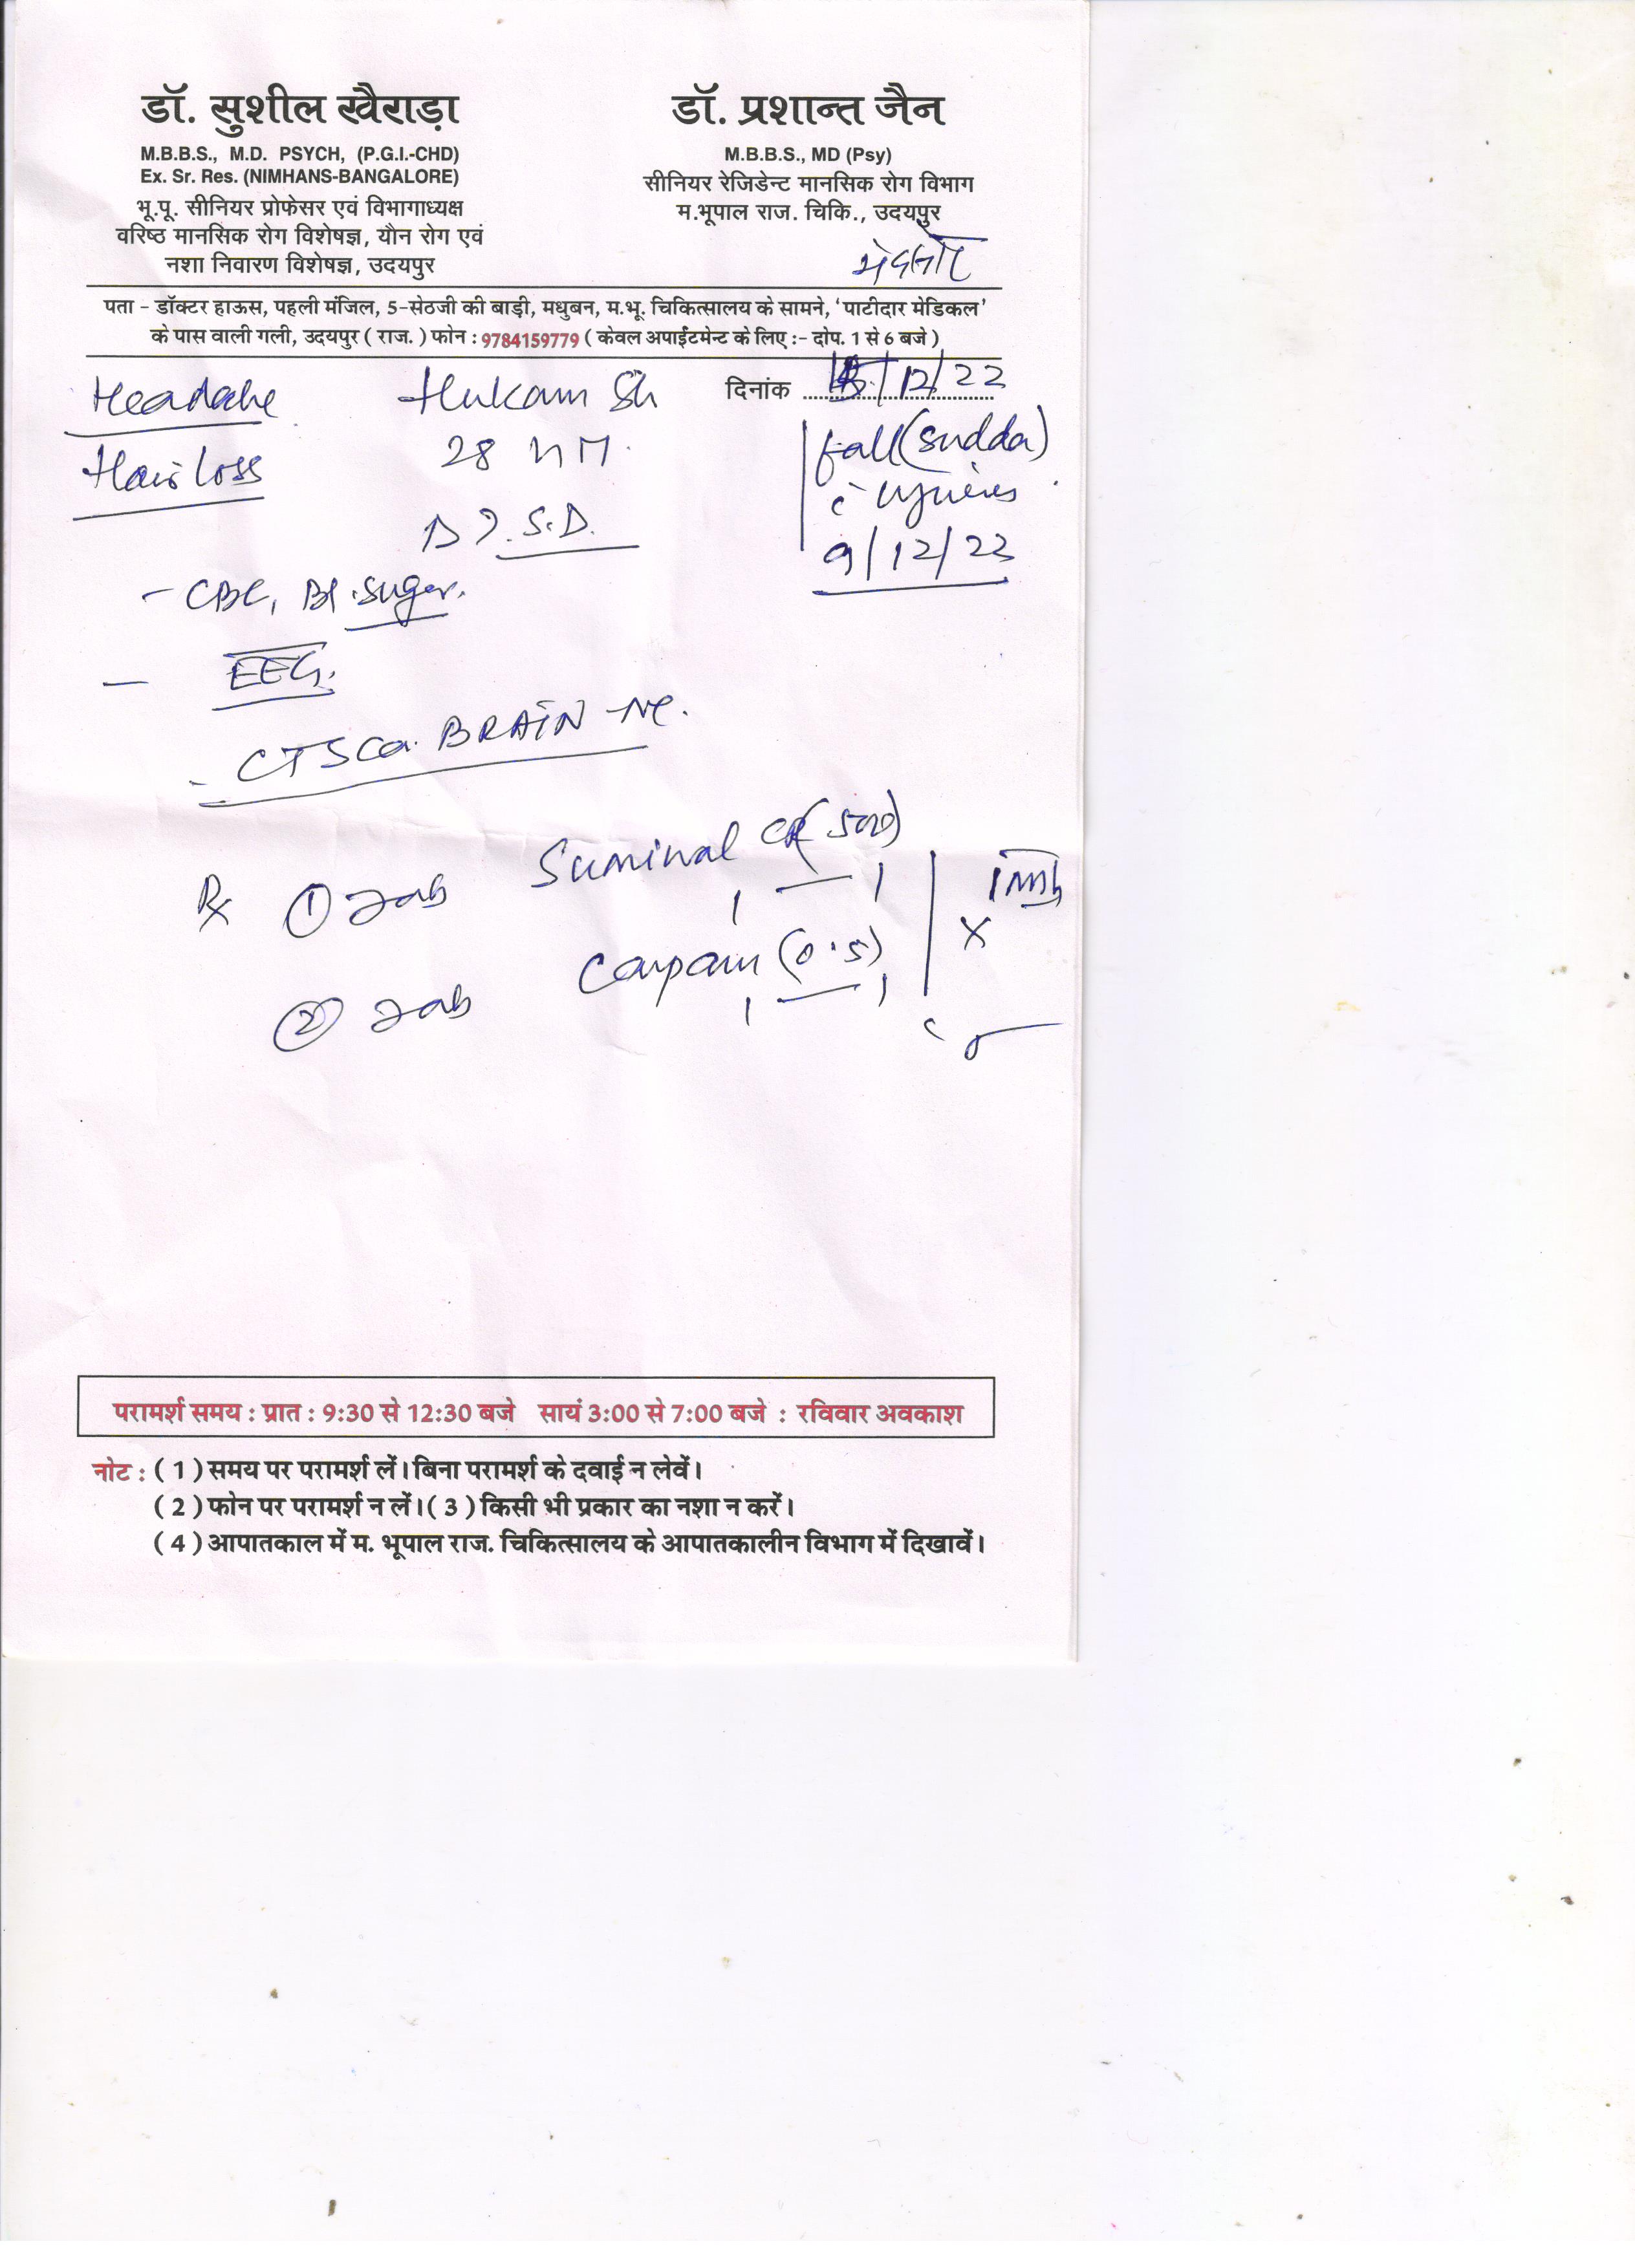 डॉ. सुशील खैराड़ा
M.B.B.S., M.D. PSYCH, (P.G.I.-CHD)
Ex. Sr. Res. (NIMHANS-BANGALORE)
भू.पू. सीनियर प्रोफेसर एवं विभागाध्यक्ष
वरिष्ठ मानसिक रोग विशेषज्ञ, यौन रोग एवं
नशा निवारण विशेषज्ञ, उदयपुर
डॉ. प्रशान्त जैन
M.B.B.S., MD (Psy)
सीनियर रेजिडेन्ट मानसिक रोग विभाग
म.भूपाल राज. चिकि., उदयपुर
पता - डॉक्टर हाऊस, पहली मंजिल, 5-सेठजी की बाड़ी, मधुबन, म.भू. चिकित्सालय के सामने, 'पाटीदार मेडिकल'
के पास वाली गली, उदयपुर ( राज. ) फोन : 9784159779 ( केवल अपाईंटमेन्ट के लिए :- दोप. 1 से 6 बजे )
दिनांक /12/22
Headache
Hair loss
Hukam Sh
28 M.
S.D.
fall (sudda)
9/12/22
- CBC, Bl. sugar.
- EEG.
- CT Sca. BRAIN
Rx ① Tab
CR (500)
1 — 1
② Tab (0.5)
1 — 1
X
परामर्श समय : प्रात : 9:30 से 12:30 बजे सायं 3:00 से 7:00 बजे : रविवार अवकाश
नोट : ( 1 ) समय पर परामर्श लें। बिना परामर्श के दवाई न लेवें।
( 2 ) फोन पर परामर्श न लें। ( 3 ) किसी भी प्रकार का नशा न करें।
( 4 ) आपातकाल में म. भूपाल राज. चिकित्सालय के आपातकालीन विभाग में दिखावें।